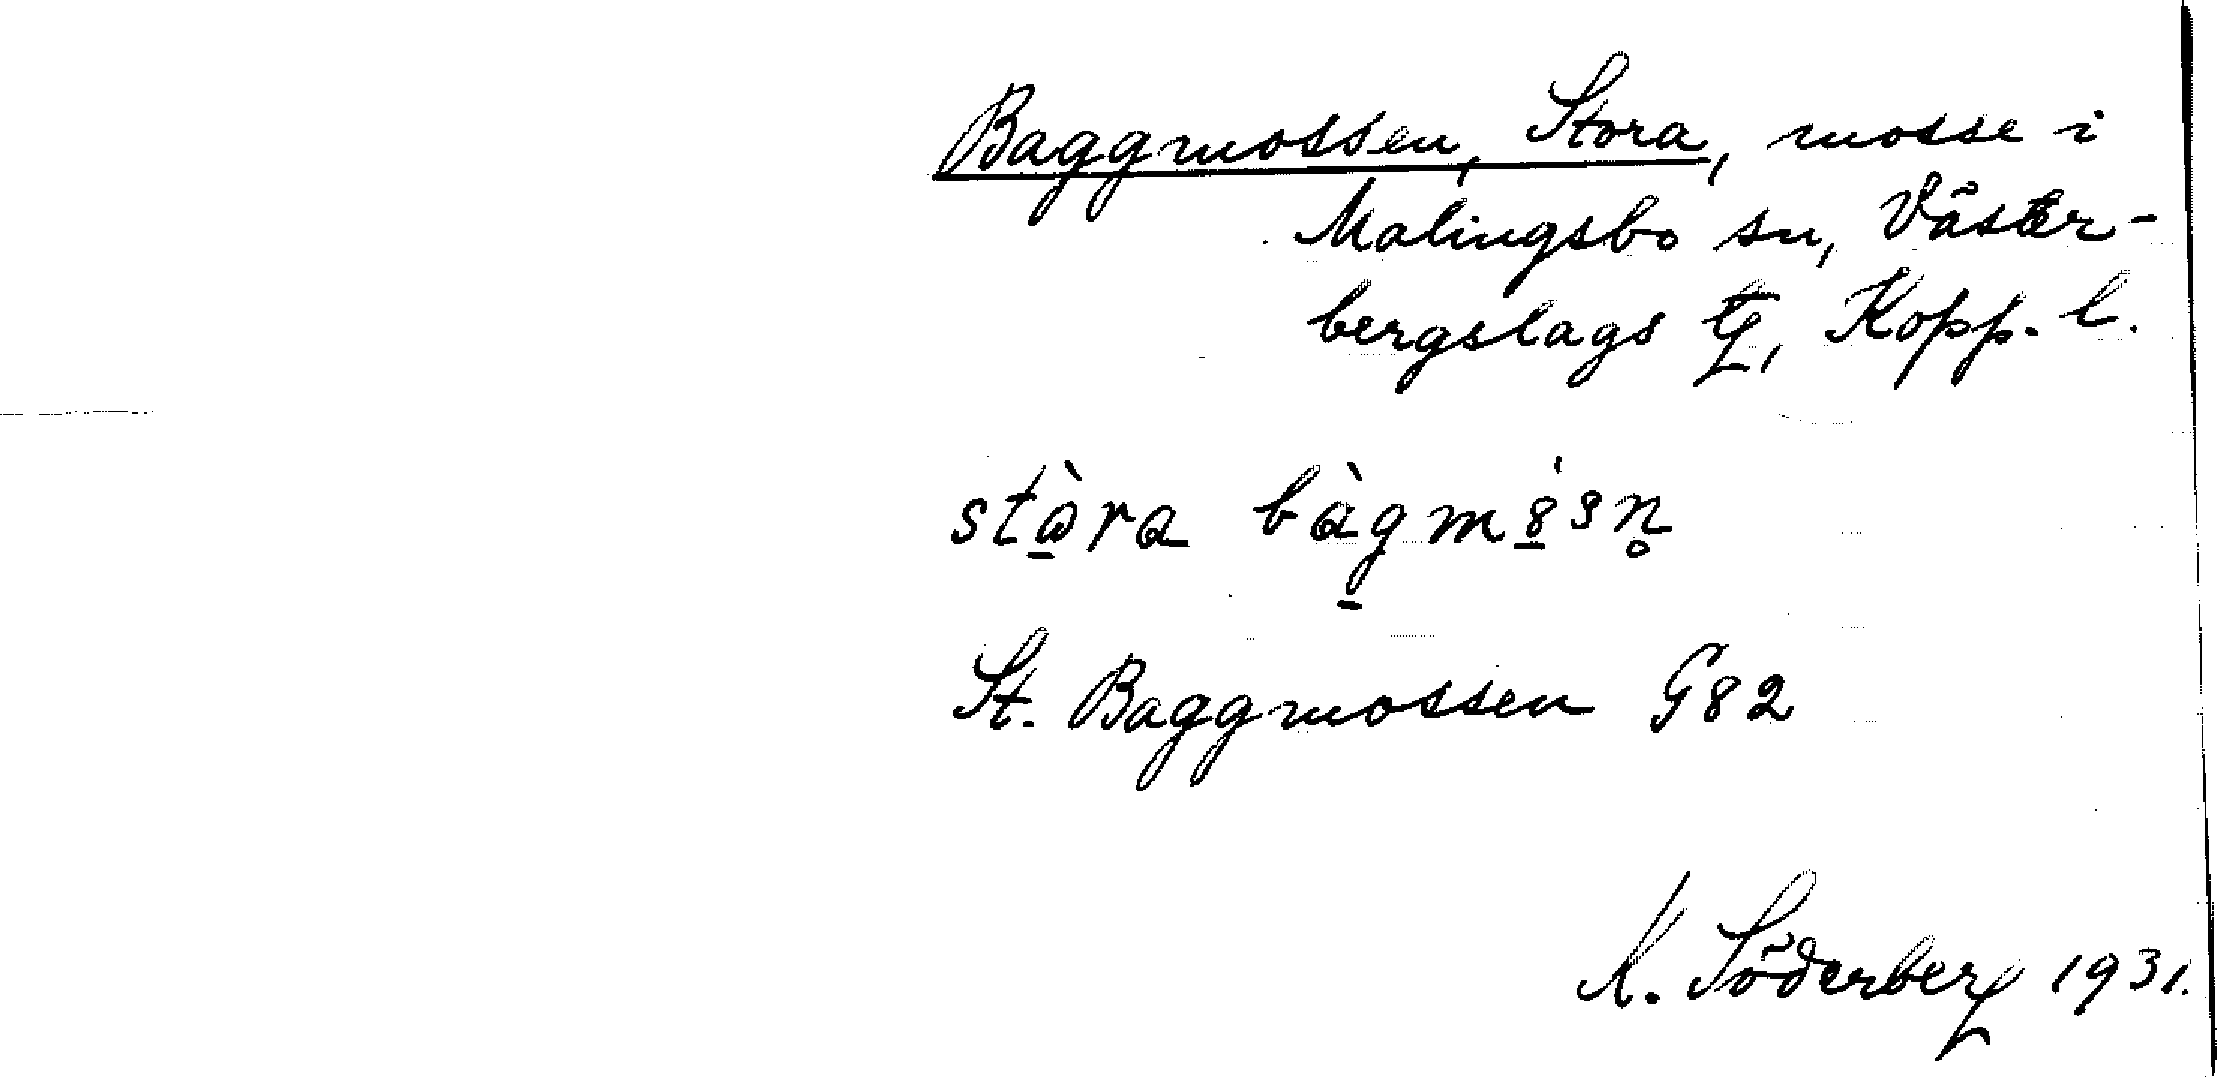 Baggmossen, Stora, mosse i
Malingsbo sn, Väster-
bergslags tg, Kopp. l.
stò̱ra bàg̱m8̱́sn̥
St. Baggmossen G82
K. Söderberg 1931.